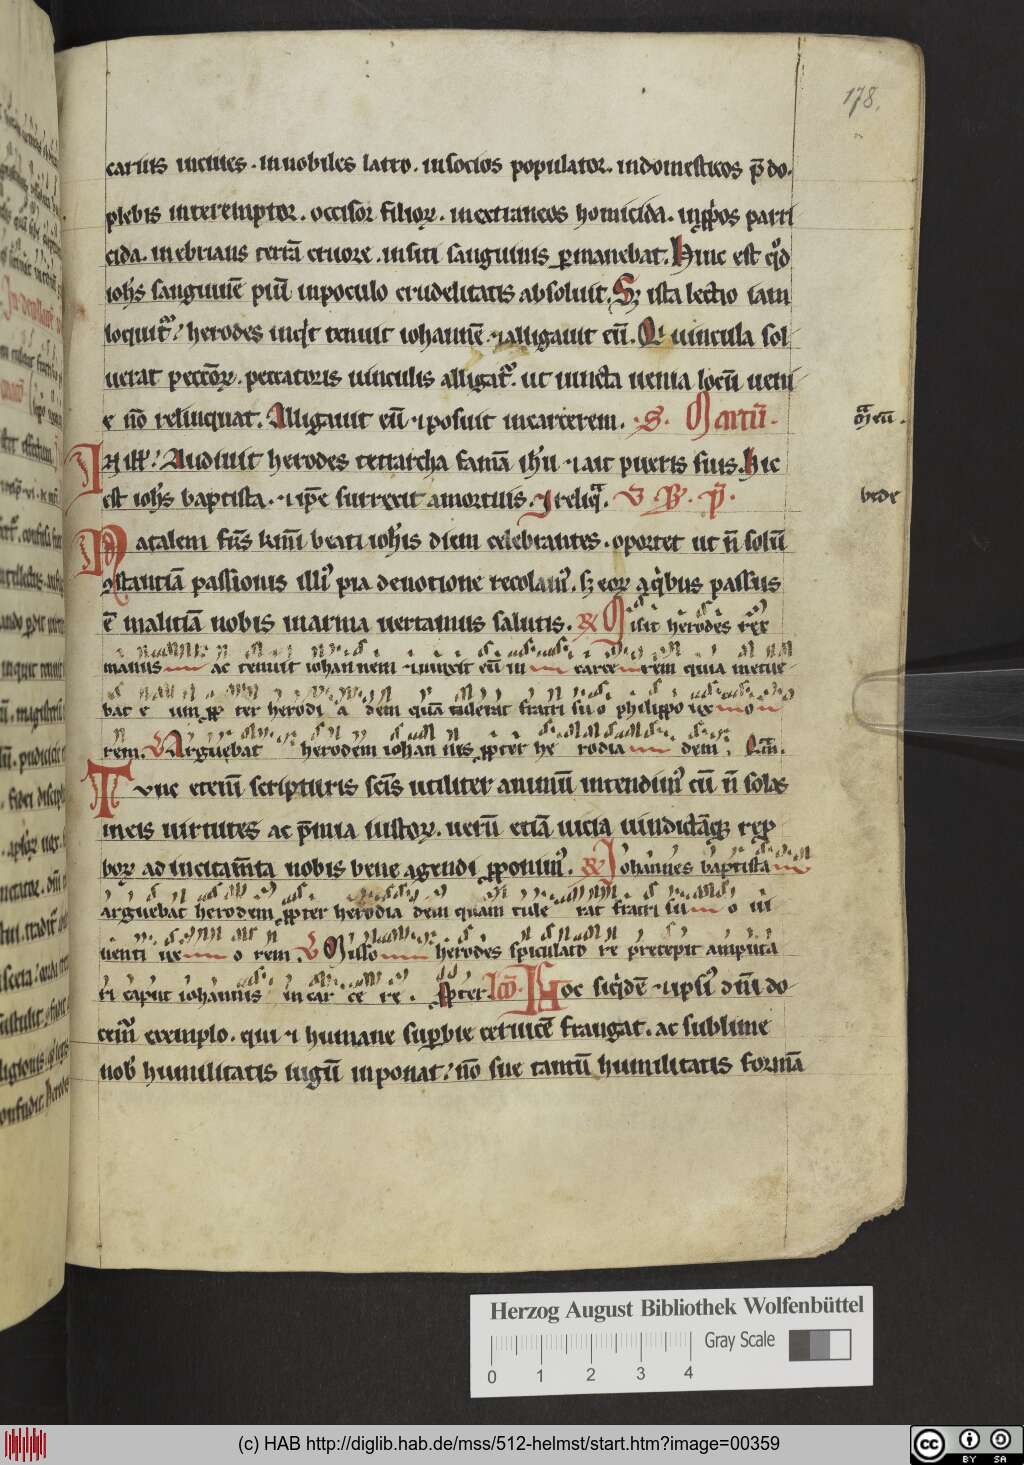 178.
cariıs in ciues. in nobiles latro. in socios populator. in domesticos p̄do.
plebis interemptor. occisor filioꝝ. in extraneos homicida. in ꝓpͥos parri
cida. inebrians terrā cruore. in siti sanguinis ꝑmanebat. Hinc est qͦd
ioh̄s sanguinē piū in poculo crudelitatis absoluit. Sꝫ ista lectio iam
loquit᷑. herodes inqͥt tenuit iohannē ⁊ alligauit eū. Qͥ uincula sol
uerat pecc̄oꝝ. peccatoris uinculis alligat᷑. ut uincta uenia locū ueni
e nō relinquat. Alligauit eū ⁊ posuit in carcerem. S. Martū.
In illͦ. Audiuit herodes tetrarcha famā ih̄u ⁊ ait pueris suis. Hic
est ioh̄s baptista. ⁊ ip̄e surrexit a mortuis. ⁊ reliq̄.
bede
Natalem fr̄s km̄i beati ioh̄is diem celebrantes. oportet ut n̄ solū
ꝯstantiā passionis illiꝰ pia deuotione recolamꝰ. sꝫ eoꝝ a qͥbus passus
ē malitiā nobis in arma uertamus salutis. ℟ Misit herodes rex
manus ac tenuit iohannem ⁊ uinxit eū in carcerem quia metue
bat eum ꝓpter herodiadem quā tulerat fratri suo philippo uxo
rem. V Arguebat herodem iohannes ꝓpter herodiadem. Qm̄.
Tunc etem̄ scripturis sc̄is utiliter animū intendimꝰ cū n̄ solos
in eis uirtutes ac p̄mia iustoꝝ. uerū etiā uicia uindictāqꝫ rep
boꝝ ad incitam̄ta nobis bene agendi ꝓponimꝰ. ℟ Iohannes baptista
arguebat herodem ꝓpter herodiadem quam tulerat fratri suo ui
uenti uxorem. V Misso herodes spiculatore precepit amputa
ri caput iohannis in carcere. Ꝓpter. Hoc siqͥdē ⁊ ipsiꝰ dn̄i do
cemꝰ exemplo. qui ⁊ humane suꝑbie ceruicē frangat. ac sublime
nobͥ humilitatis iugū inponat. nō sue tantū humilitatis formā
Herzog August Bibliothek Wolfenbüttel
Gray Scale
0 1 2 3 4
(c) HAB http://diglib.hab.de/mss/512-helmst/start.htm?image=00359
cc BY SA